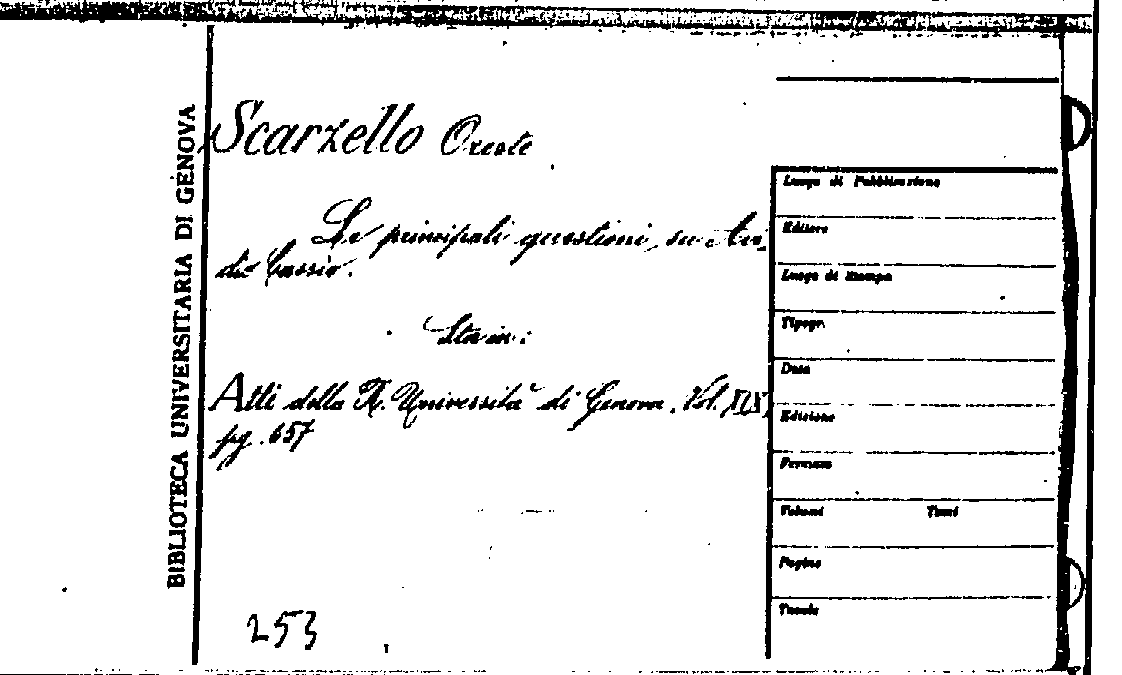 BIBLIOTECA UNIVERSITARIA DI GENOVA
Scarzello Oreste
Le principali questioni su
di Cassio.
Sta in:
Atti della R. Università di Genova. Vol. XIX
pg. 657
253
Luogo di Pubblicazione
Editore
Luogo di Stampa
Tipogr.
Data
Edizione
Formato
Volumi Tomi
Pagine
Tavole